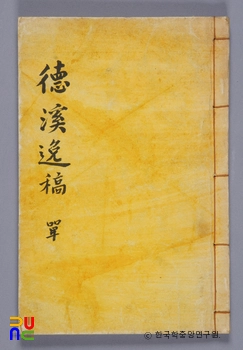 德溪逸稿 單
© 한국학중앙연구원